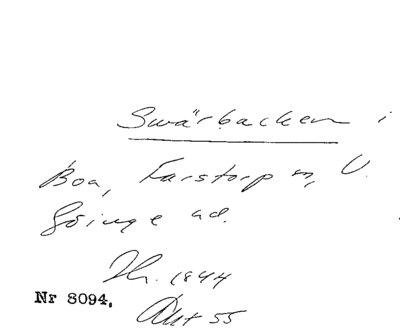 Swärbacken i
Boa, Farstorp sn, V.
Göinge hd.
Thr. 1844
Akt 55
Nr 8094.